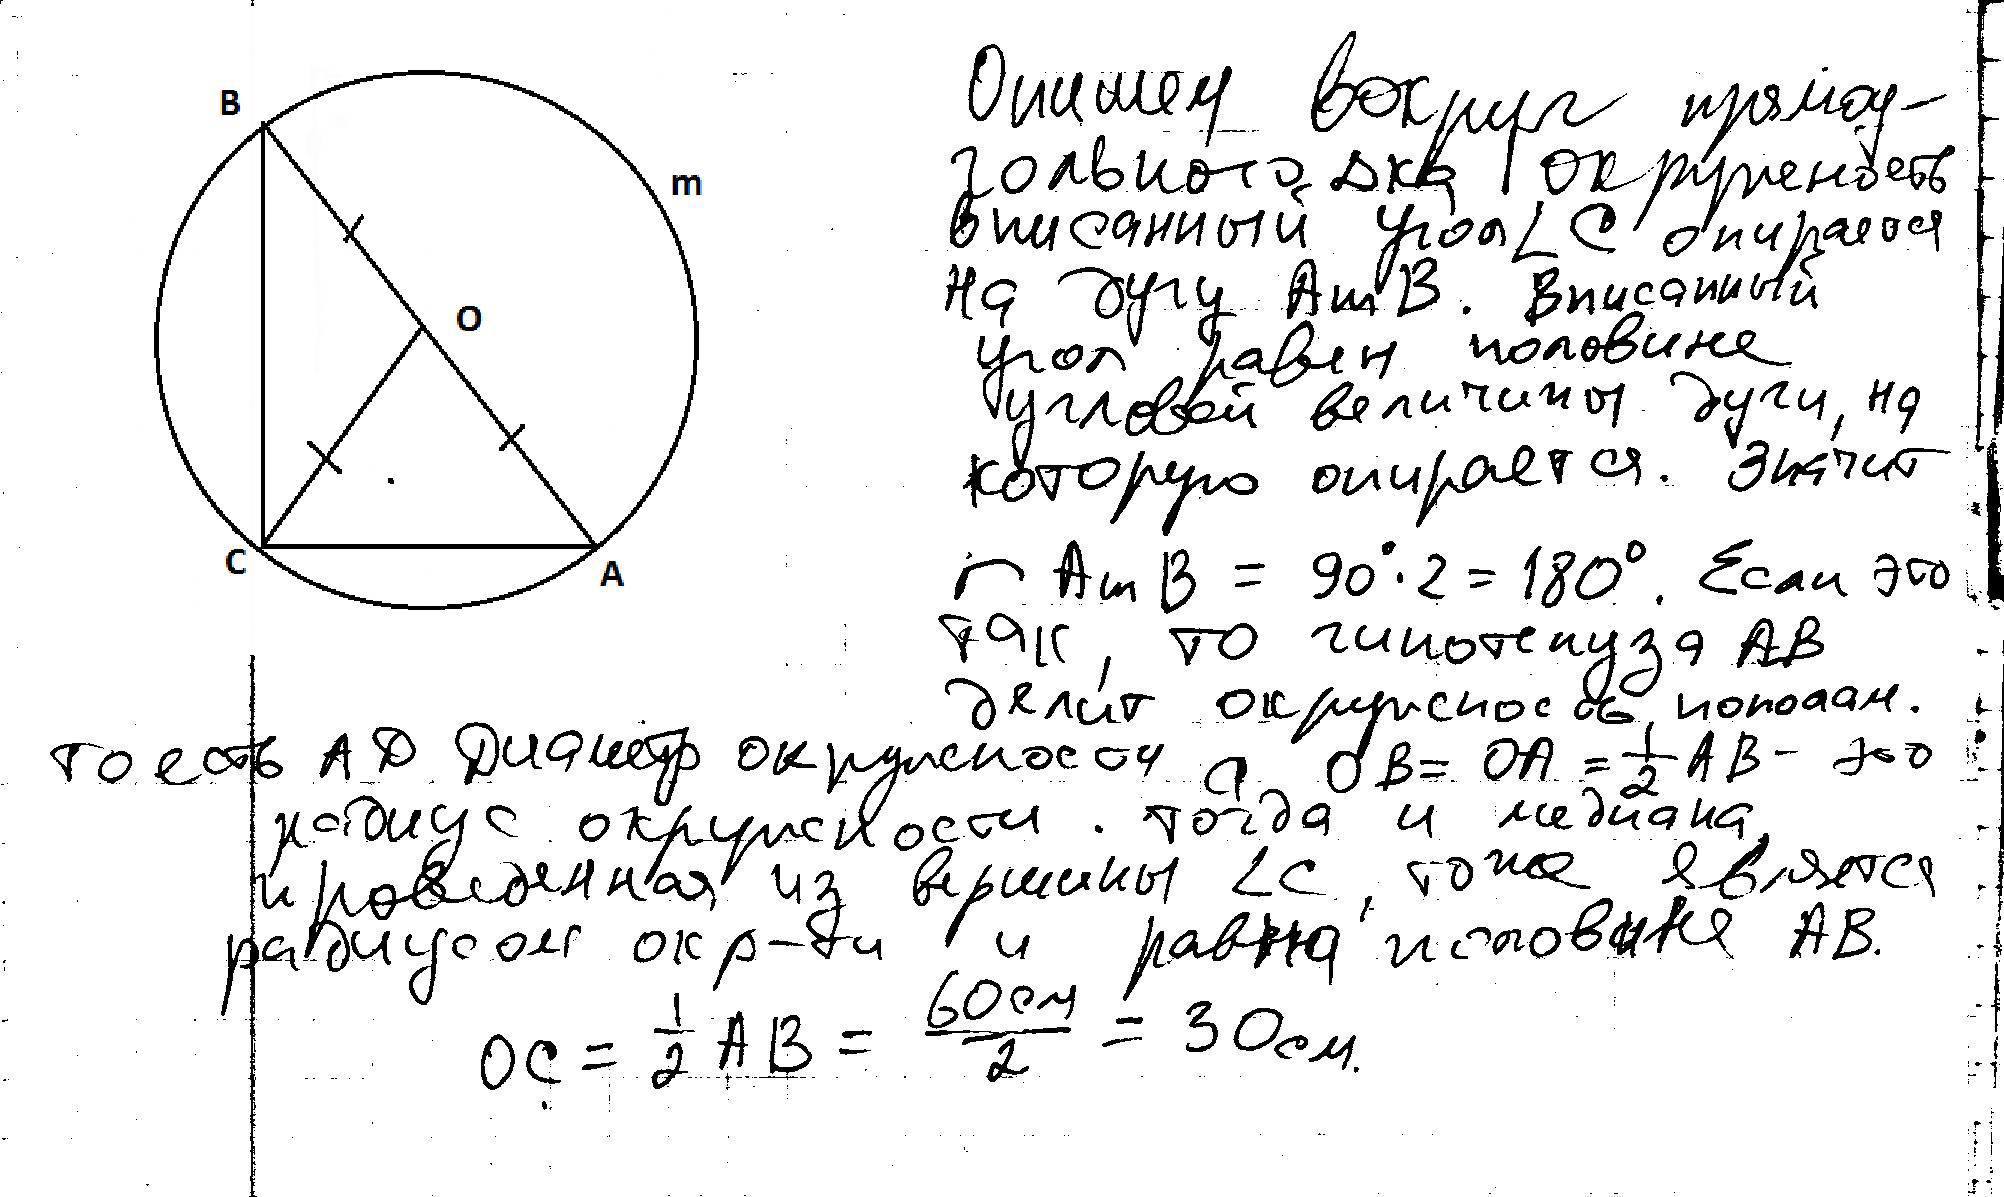 B
m
O
C
A
Опишем вокруг прямоу-
гольного Δка окружность
вписанный угол ∠C опирается
на дугу AmB. Вписанный
угол равен половине
угловой величины дуги, на
которую опирается. Значит
AmB = 90°·2 = 180°. Если это
так, то гипотенуза AB
делит окружность пополам.
то есть AD Диаметр окружности а OB = OA = 1/2 AB - это
радиус окружности. тогда и медиана,
проведенная из вершины ∠C, тоже является
радиусом окр-ти и равна половине AB.
OC = 1/2 AB = 60см/2 = 30см.